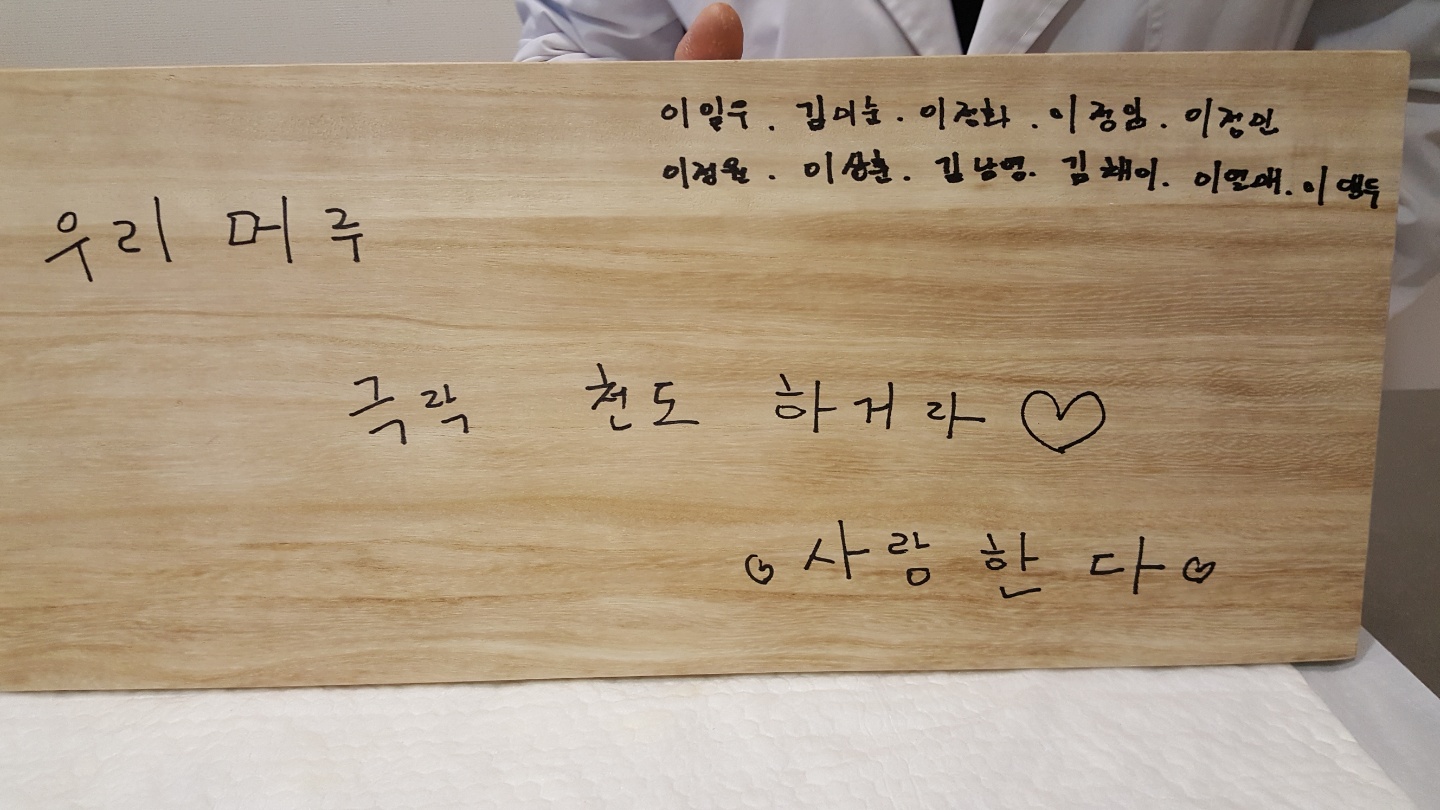 이일우. 김미순. 이정화. 이정임. 이정민
이정원. 이상훈. 김남영. 김채이. 이연애. 이맹두
우리 메주
극락 천도 하거라♡
♡사랑한다♡